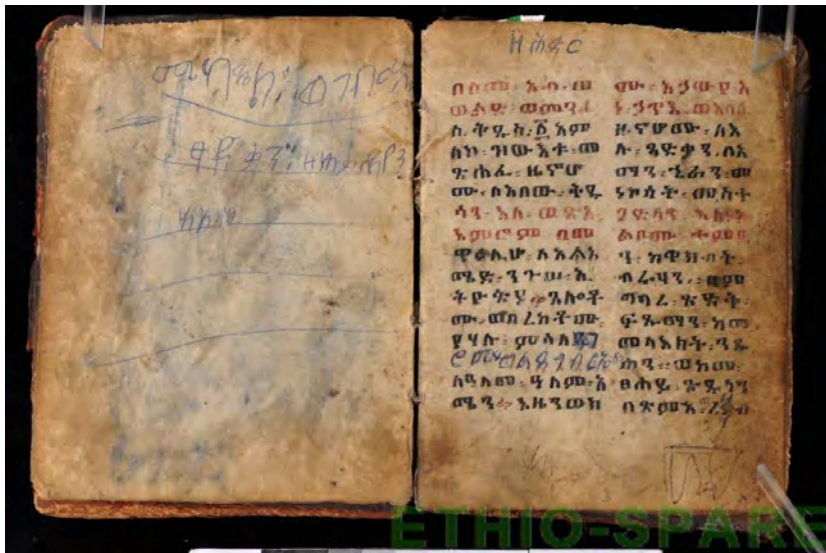 ጻድቃን፡
ዘሕዳር
በስመ፡ አብ፡ ወ
ወልድ፡ ወመንፈ
ስ፡ ቅዱስ፡ ፩ አም
ላክ፡ ዝውእቱ፡ መ
ጽሐፈ፡ ዜኖሆ
ሙ፡ ለአበው፡ ቅዱ
ሳን፡ እለ፡ ወጽኡ
እምሮም፡ በመ
ዋዕሊሁ፡ ለአልአ
ሜድ፡ ንጉሠ፡ ኢ
ትዮጵያ፡ ጸሎቶ
ሙ፡ ወበረከቶሙ፡
የሃሉ፡ ምስለ፡
ለዓለመ፡ ዓለም፡ አ
ሜን፡ ንዜንወክ
ሙ፡ አኃውየ፡ አ
ነ፡ ኃጥእ፡ ወአባሲ
ዜኖሆሙ፡ ለእ
ሉ፡ ጻድቃን፡ ለእ
ማን፡ ኄራን፡ መ
ነኮሳት፡ መስተ
ጋድላን፡ እለ፡
ልቦሙ፡
ን፡ ከዋክብት፡
ብሩሃን፡ በም
ግባረ፡ ጽድቅ፡
ፍጹማን፡ ከመ
መላእክት፡ ንጹ
ሓን፡ ወከመ፡
ፀሐይ፡ ጽዱላን
በጽምእ፡
ETHIO-SPARE